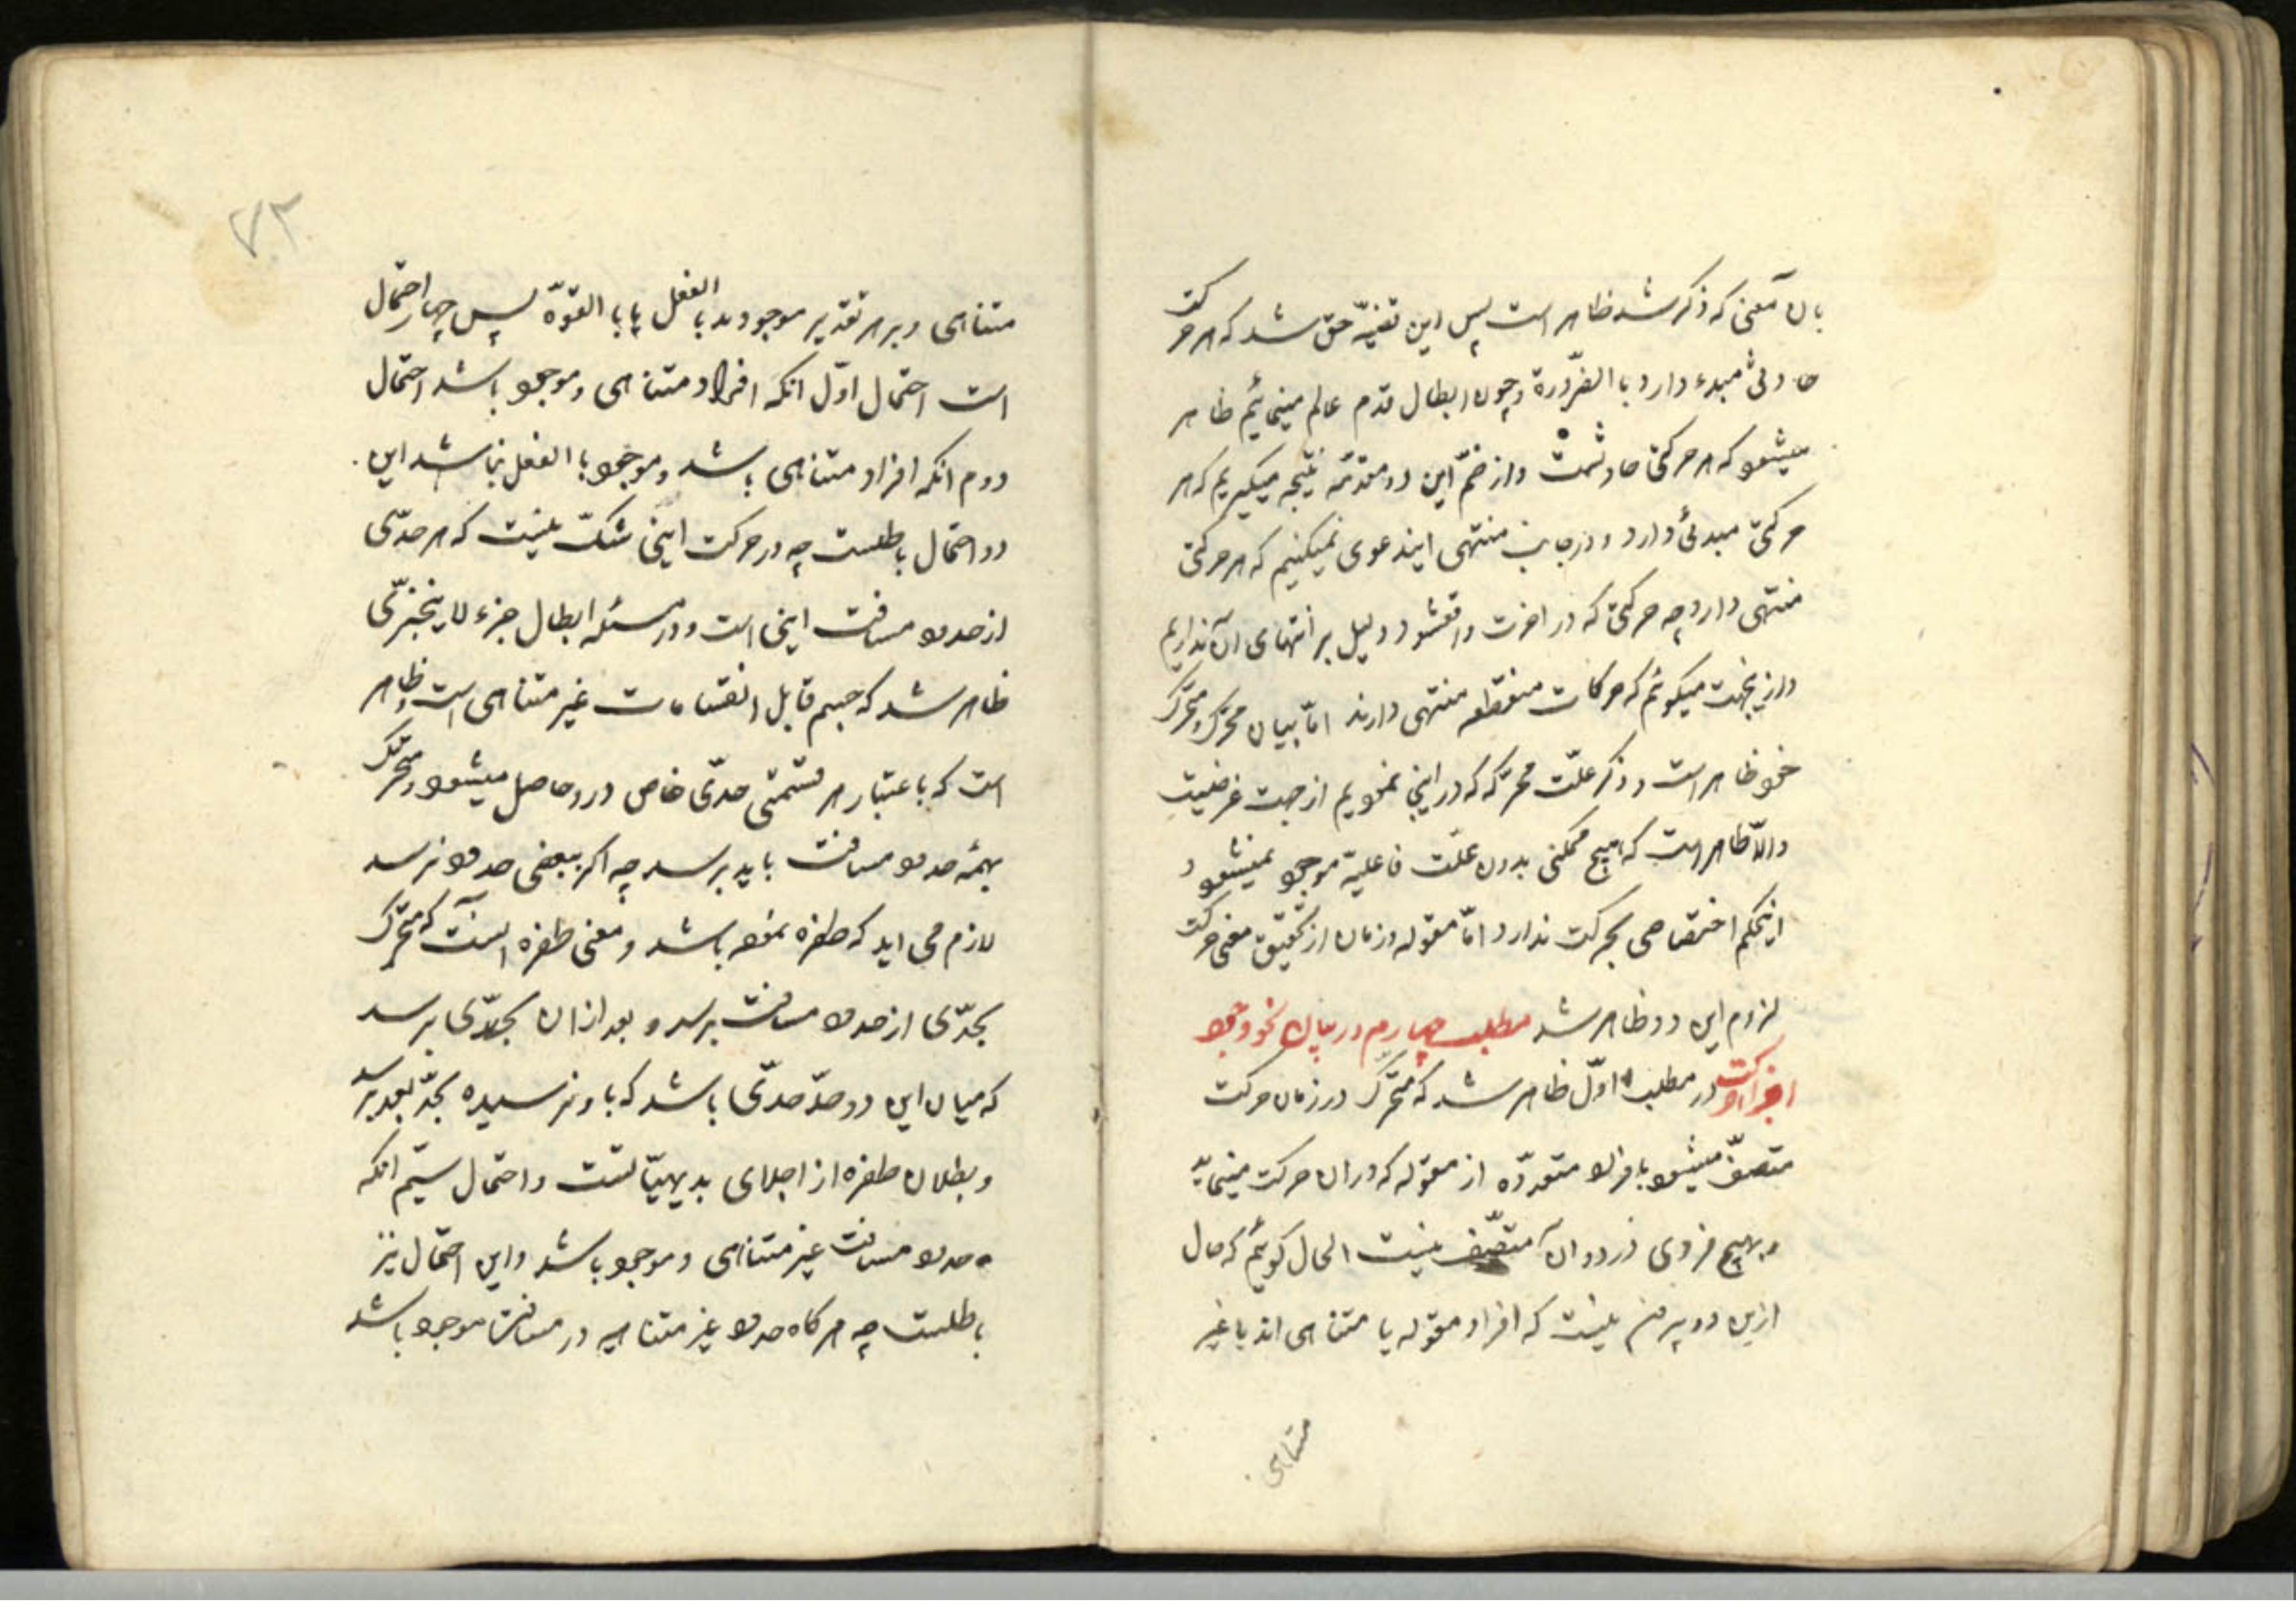 بان معنی که ذکر شد ظاهر است پس این قضیّه حق شد که هر حرکت
حادثی مبدء دارد با الضّرورة و چون ابطال قدم عالم مینمائیم ظاهر
میشود که هر حرکتی حادثست و از ضمّ این دو مقدّمه نتیجه میکیریم که هر
حرکتی مبدئی دارد و در جانب منتهی ایندعوی نمیکنیم که هر حرکتی
منتهی دارد چه حرکتی که در اخرت واقعشود دلیل بر انتهای آن نداریم
و ازینجهت میکوئیم که حرکات منقطعه منتهی دارند امّا بیان محرّک و متحرّک
خود ظاهر است و ذکر علّت محرّکه که در اینجا نمودیم از جهت غرضیست
و الّا ظاهر است که هیچ ممکنی بدون علّت فاعلیّه موجود نمیشود و
اینحکم اختصاصی بحرکت ندارد امّا مقوله و زمان از تحقیق معنی حرکت
لزوم این دو ظاهر شد مطلب چهارم در بیان نحو وجود
افراد حرکت در مطلب اوّل ظاهر شد که متحرّک در زمان حرکت
متّصف میشود بافراد متعدّده از مقوله که در ان حرکت مینماید
و بهیچ فردی در دو ان متّصف نیست الحال کوئیم که حال
ازین دو بیرون نیست که افراد مقوله یا متناهی اند یا غیر
متناهی
۷۳
متناهی و بر هر تقدیر موجودند بالفعل یا با القوّه پس چهار احتمال
است احتمال اوّل انکه افراد متناهی و موجود باشد احتمال
دوم انکه افراد متناهی باشد و موجود با الفعل نباشد این
دو احتمال باطلست چه در حرکت اینی شکّ نیست که هر حدّی
از حدود مسافت اینی است و در مسئله ابطال جزء لا یتجزّی
ظاهر شد که جسم قابل انقسامات غیر متناهی است و ظاهر
است که باعتبار هر قسمتی حدّی خاص درو حاصل میشود و متحرّک
بهمهٔ حدود مسافت باید برسد چه اکر ببعضی حدود نرسد
لازم می اید که طفره نموده باشد و معنی طفره انست که متحرّک
بحدّی از حدود مسافت برسد و بعد از ان بحدّی برسد
که میان این دو حدّ حدّی باشد که باو نرسیده بحدّ بعد برسد
و بطلان طفره از اجلای بدیهیّاتست و احتمال سیّم انکه
حدود مسافت غیر متناهی و موجود باشد و این احتمال نیز
باطلست چه هرکاه حدود غیر متناهیه در مسافت موجود باشد